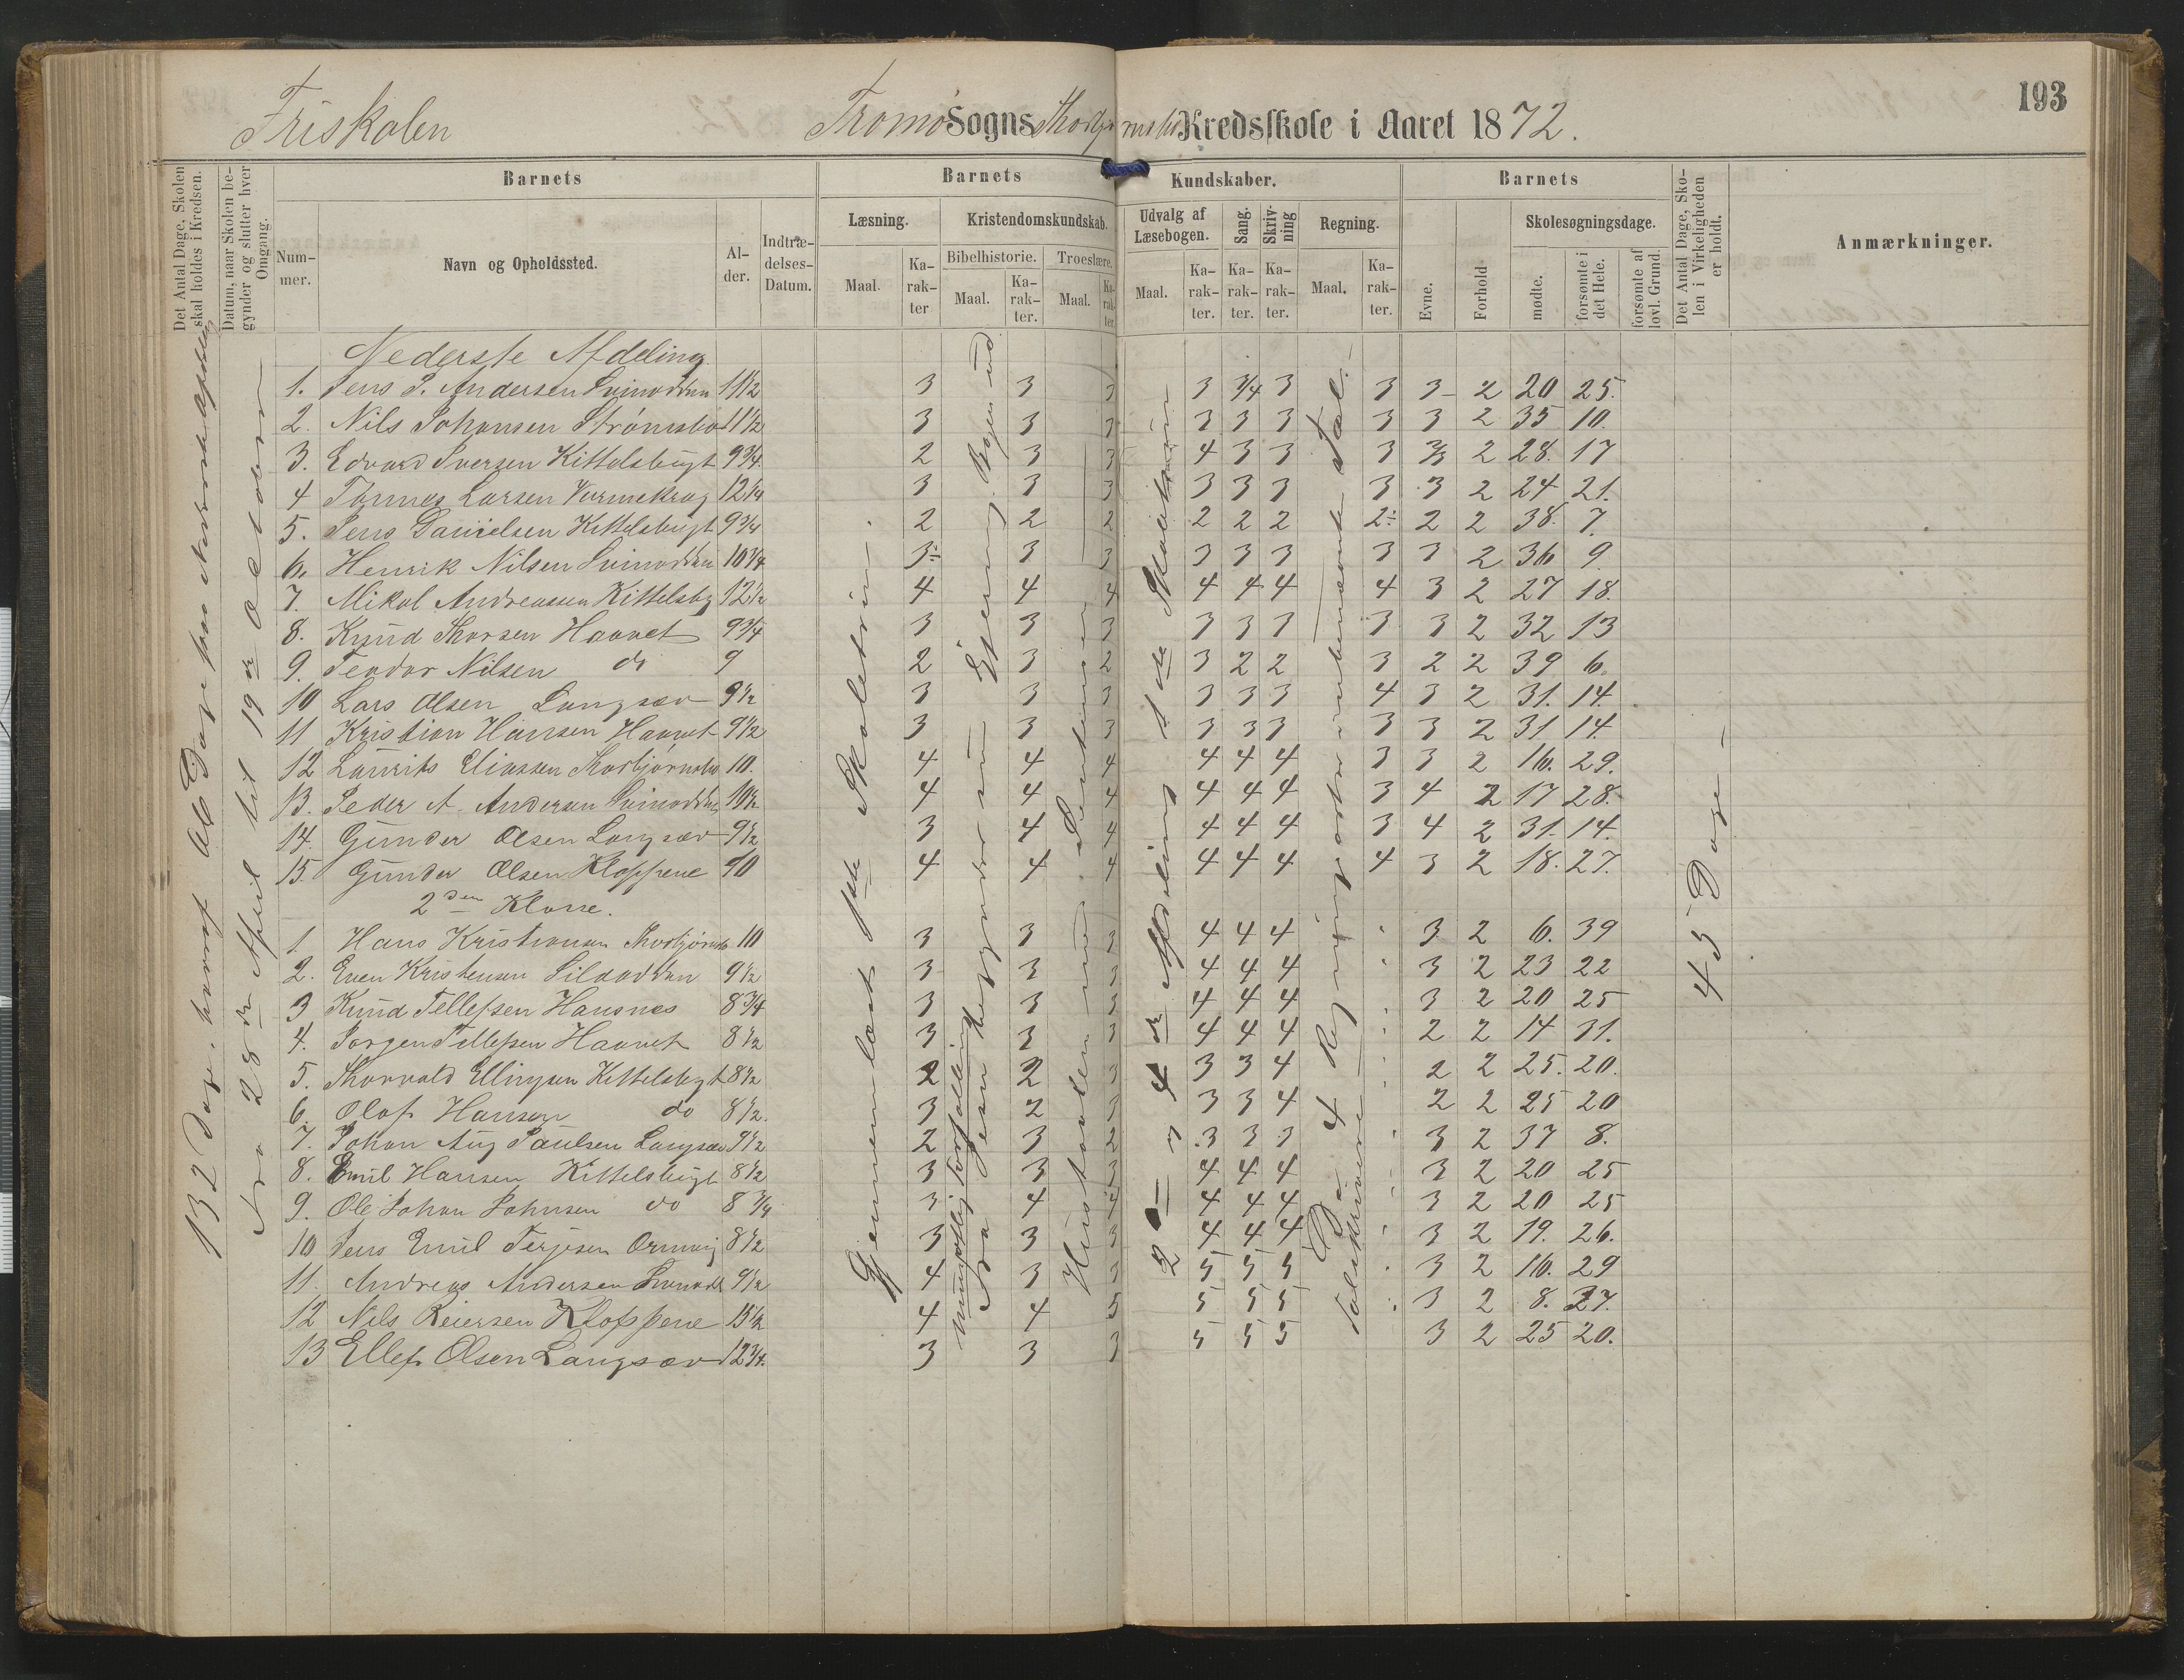 193
Friskolen Tromø Sogns Kredsskole i Aaret 1872.
Det Antal Dage, Skolen skal holdes i Kredsen.
Datum, naar Skolen begynder og slutter hver Omgang.
Barnets
Nummer.
Navn og Opholdssted.
Alder.
Indtrædelses-Datum.
Barnets Kundskaber.
Læsning.
Maal.
Karakter
Kristendomskundskab.
Bibelhistorie.
Maal.
Karakter.
Troeslære.
Maal.
Karakter.
Udvalg af Læsebogen.
Maal.
Karakter.
Sang.
Karakter.
Skrivning
Karakter.
Regning.
Maal.
Karakter.
Barnets
Evne.
Forhold
Skolesøgningsdage.
mødte.
forsømte i det Hele.
forsømte af lovl. Grund.
Det Antal Dage, Skolen i Virkeligheden er holdt.
Anmærkninger.
Nederste Afdeling
1. Jens P. Andersen Svinodden 11 1/2 3 3 3 3 3/4 3 3 3 2 20 25.
2. Nils Johansen Strømsbo 11 1/2 3 3 3 3 3 3 3 3 2 35 10.
3. Edvard Iversen Kittelsbugt 9 3/4 2 3 3 4 3 3 3 2/3 2 28. 17
4 Tønnes Larsen 12 1/4 3 3 3 3 3 3 3 3 2 24 21.
5. Jens Danielsen Kittelsbugt 9 3/4 2 2 2 2 2 2 2÷ 2 2 38. 7.
6. Henrik Nilsen Svinodden 10 3/4 3÷ 3 3 3 3 3 3 3 2 36 9.
7. Mikal Andreassen Kittelsby 12 1/2 4 4 4 4 4 4 4 3 2 27 18.
8. Knud Thorsen Havnet 9 3/4 3 3 3 3 3 3 3 3 2 32 13
9. Teodor Nilsen do 9 2 3 2 3 2 2 3 2 2 39 6.
10 Lars Olsen Langsæv 9 1/2 3 3 3 3 3 3 4 3 2 31. 14.
11 Kristian Hansen Havnet 9 1/2 3 3 3 3 3 3 3 3 2 31 14.
12 Laurits Eliassen Thorbjørnsbo 10. 4 4 4 4 4 4 3 3 2 16. 29.
13. Peder A. Andersen Svinodden 10 1/2 4 4 4 4 4 4 3 4 2 17 28.
14. Gunder Olsen Langsæv 9 1/2 3 4 4 4 4 4 3 4 2 31. 14.
15. Gunder Olsen Kloppene 10 4 4 4 4 4 4 4 3 2 18. 27.
2den Klasse.
1 Hans Kristiansen 10 3 3 3 4 4 4 3 2 6. 39
2. Even Kristensen Sildodden 9 1/2 3 3 3 4 4 4 3 2 23 22
3 Knud Tellefsen Havsnes 8 3/4 3 3 3 4 4 4 3 2 20 25
4. Jørgen Tellefsen Havnet 8 1/2 3 3 3 4 4 4 2 2 14 31.
5. Thorvald Ellingsen Kittelsbugt 8 1/2 2 2 3 3 3 4 2 2 25. 20.
6. Olaf Hansen do 8 1/2. 3 2 3 3 3 4 2 2 25 20
7. Johan Aug Paulsen Langsæv 9 1/2 2 3 2 3 3 3 3 2 37 8.
8. Emil Hansen Kittelsbugt 8 1/2 3 3 3 4 4 4 3 2 20 25
9. Ole Johan Johnsen do 8 3/4 3 4 4 4 4 4 3 2 20 25
10 Jens Emil Terjesen 8 1/2 3 3 3 4 4 4 3 2 19. 26.
11. Andreas Andersen Svinodd 9 1/2 4 3 3 5 5 5 3 2 16. 29
12 Nils Reiersen Kloppene 15 1/2 4 4 5 5 5 5 3 2 8. 27.
13 Ellef Olsen Langsæv 12 3/4. 3 3 3 5 5 5 3 2 25 20.
132 Dage,
fra 28de April til 19de October
Gjennemlæst 1ste Skoletrin.
45 Dage